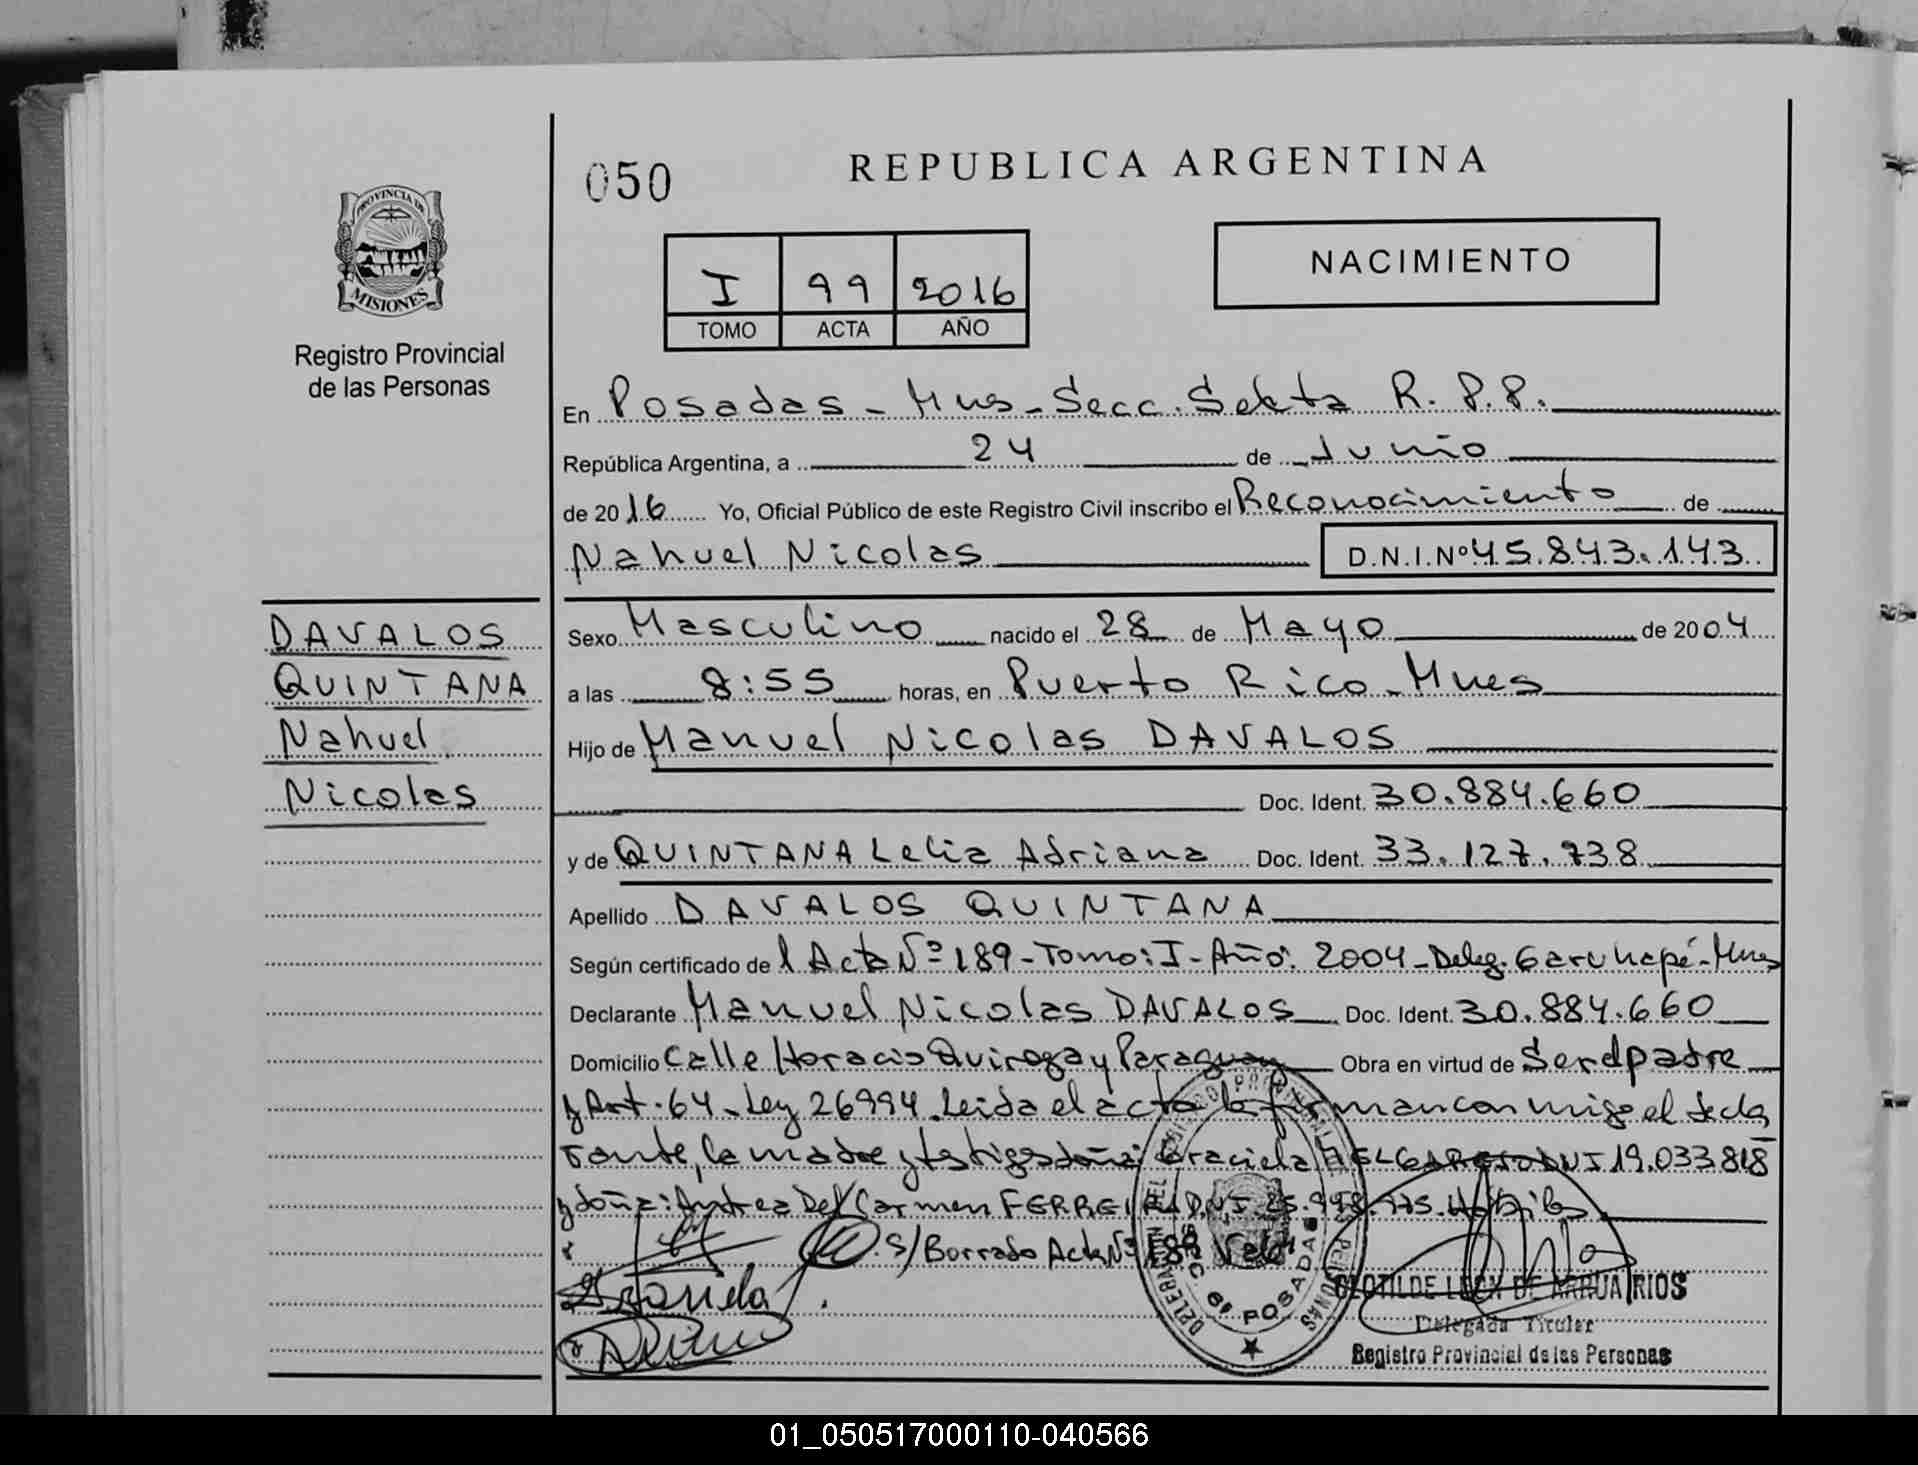 050
REPUBLICA ARGENTINA
PROVINCIA DE
MISIONES
Registro Provincial
de las Personas
I 99 2016
TOMO ACTA AÑO
NACIMIENTO
En Posadas - Mnes - Secc. Sexta R. P. P.
República Argentina, a 24 de Junio
de 2016 Yo, Oficial Público de este Registro Civil inscribo el Reconocimiento de
Nahuel Nicolas D.N.I.Nº 45.843.143
DAVALOS
QUINTANA
Nahuel
Nicolas
Sexo Masculino nacido el 28 de Mayo de 2004
a las 8:55 horas, en Puerto Rico - Mnes
Hijo de Manuel Nicolas DAVALOS
Doc. Ident. 30.884.660
y de QUINTANA Lelia Adriana Doc. Ident. 33.127.738
Apellido DAVALOS QUINTANA
Según certificado de l Acta Nº 189 - Tomo: I - Año: 2004 - Deleg. Garuhapé - Mnes
Declarante Manuel Nicolas DAVALOS Doc. Ident. 30.884.660
Domicilio Calle Horacio Quiroga y Paraguay Obra en virtud de Ser el padre
y Art. 64 - Ley 26994. Leida el acta la firman conmigo el decla
rante, la madre y testigos doña: Graciela DNI 19.033.818
y doña: Andrea Del Carmen FERREIRA DNI Habiles
S/ Borrado Acta Nº 189 Vale
SECC 6ª POSADAS
CLOTILDE LEON DE RIOS
Delegada Titular
Registro Provincial de las Personas
01_050517000110-040566